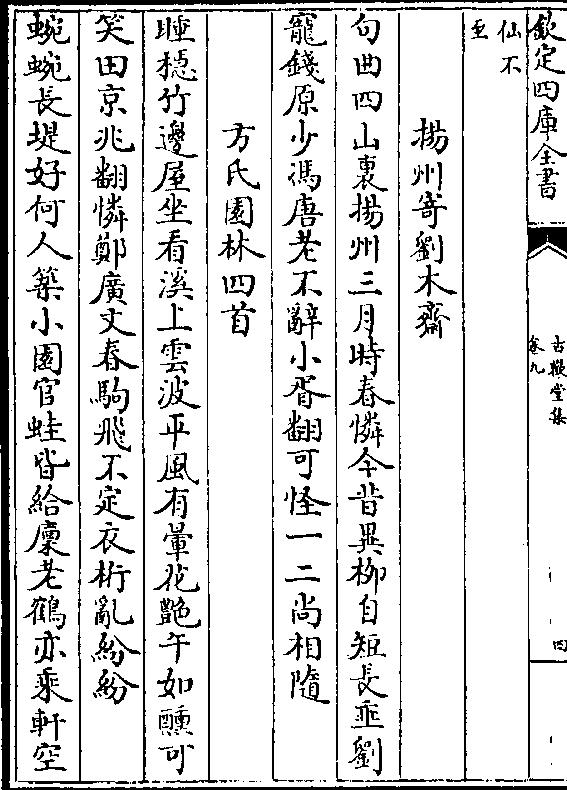 欽定四庫全書
古歡堂集
卷九
四
仙不
至
揚州寄劉木齋
句曲四山裏揚州三月時春憐今昔異柳自短長垂劉
寵錢原少馮唐老不辭小胥翻可怪一二尚相隨
方氏園林四首
睡穩竹邊屋坐看溪上雲波平風有暈花艷午如醺可
笑田京兆翻憐鄭廣文春駒飛不定衣桁亂紛紛
蜿蜿長堤好何人築小園官蛙皆給廩老鶴亦乘軒空